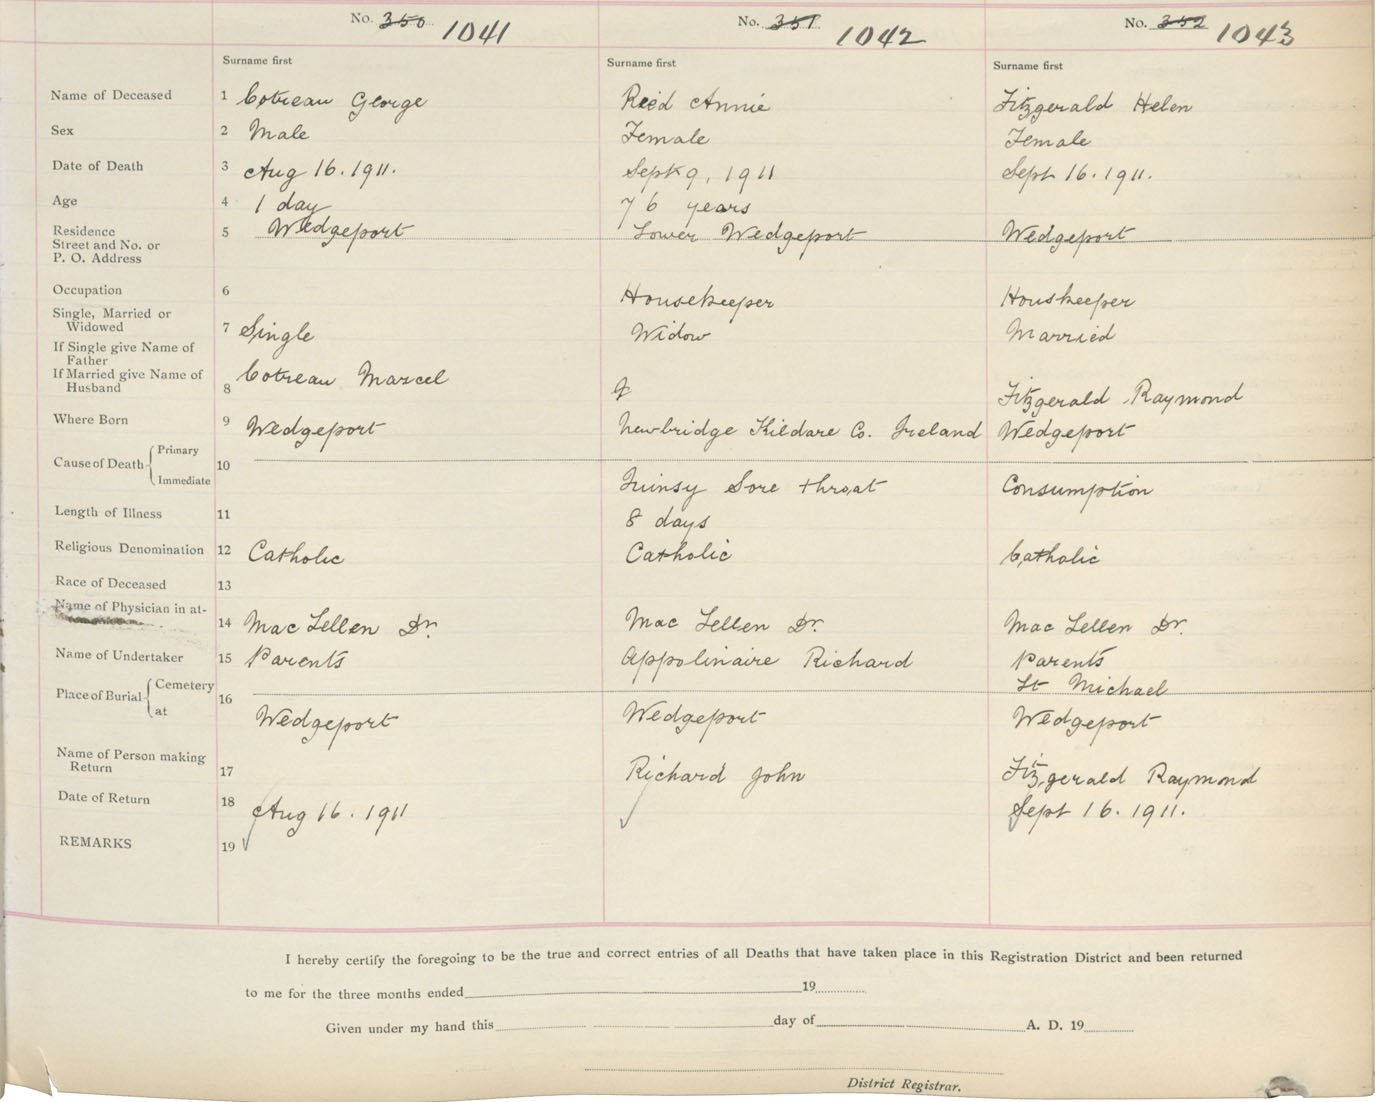 No. 350 1041 No. 351 1042 No. 352 1043
Surname first Surname first Surname first
Name of Deceased 1 Cotreau George Reed Annie Fitzgerald Helen
Sex 2 Male Female Female
Date of Death 3 Aug 16. 1911. Sept 9, 1911 Sept 16. 1911.
Age 4 1 day 76 years
Residence
Street and No. or 5 Wedgeport Lower Wedgeport Wedgeport
P. O. Address
Occupation 6 Housekeeper Houskeeper
Single, Married or
Widowed 7 Single Widow Married
If Single give Name of
Father
If Married give Name of
Husband 8 Cotreau Marcel Fitzgerald Raymond
Where Born 9 Wedgeport Newbridge Kildare Co. Ireland Wedgeport
Cause of Death Primary 10
Immediate Quinsy Sore throat Consumption
Length of Illness 11 8 days
Religious Denomination 12 Catholic Catholic Catholic
Race of Deceased 13
Name of Physician in at-
14 Mac Lellen Dr. Mac Lellen Dr. Mac Lellen Dr.
Name of Undertaker 15 Parents Appolinaire Richard Parents
Place of Burial Cemetery 16 St Michael
at Wedgeport Wedgeport Wedgeport
Name of Person making
Return 17 Richard John Fitzgerald Raymond
Date of Return 18 Aug 16. 1911 Sept 16. 1911.
REMARKS 19
I hereby certify the foregoing to be the true and correct entries of all Deaths that have taken place in this Registration District and been returned
to me for the three months ended 19
Given under my hand this day of A. D. 19
District Registrar.